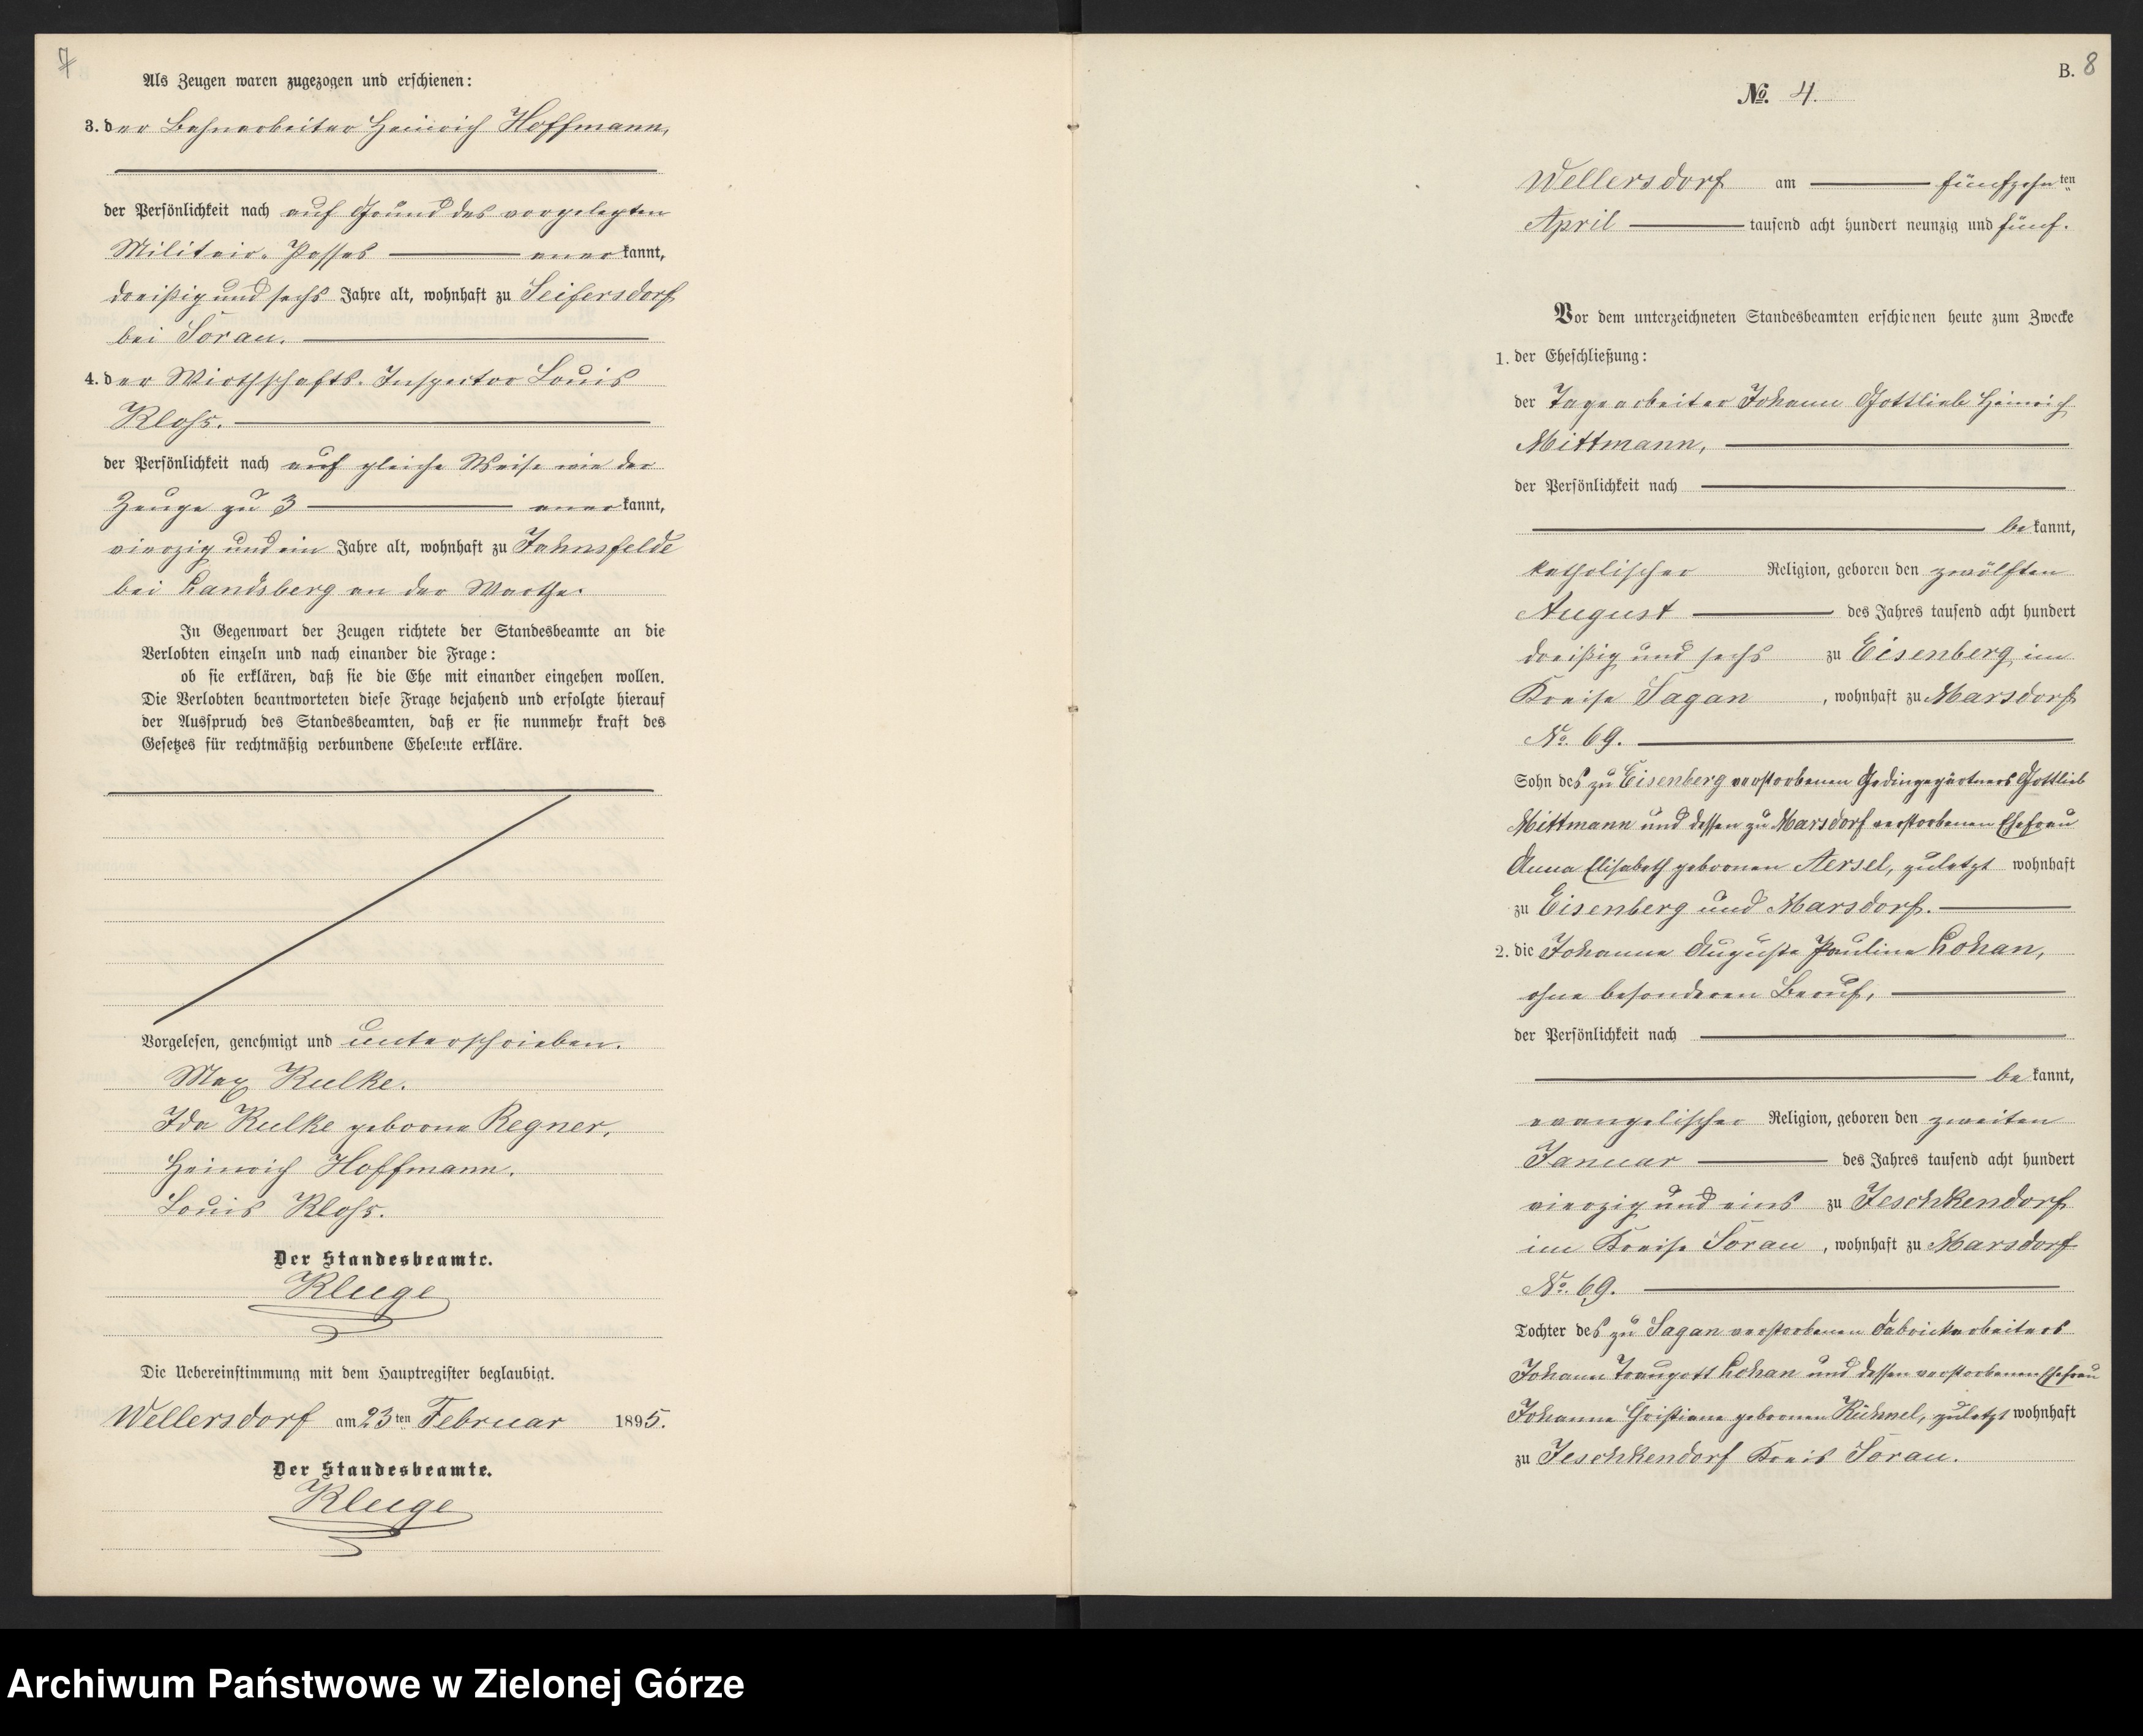 7
Als Zeugen waren zugezogen und erschienen:
3. der Bahnarbeiter Heinrich Hoffmann,
der Persönlichkeit nach auf Grund des vorgelegten
Militair-Passes anerkannt,
dreißig und sechs Jahre alt, wohnhaft zu Seifersdorf
bei Sorau.
4. der Wirthschafts-Inspector Louis
Kloss.
der Persönlichkeit nach auf gleiche Weise wie der
Zeuge zu 3 anerkannt,
vierzig und ein Jahre alt, wohnhaft zu Jahnsfelde
bei Landsberg an der Warthe.
In Gegenwart der Zeugen richtete der Standesbeamte an die
Verlobten einzeln und nach einander die Frage:
ob sie erklären, daß sie die Ehe mit einander eingehen wollen.
Die Verlobten beantworteten diese Frage bejahend und erfolgte hierauf
der Ausspruch des Standesbeamten, daß er sie nunmehr kraft des
Gesetzes für rechtmäßig verbundene Eheleute erkläre.
Vorgelesen, genehmigt und unterschrieben.
Max Kulke.
Ida Kulke geborne Regner.
Heinrich Hoffmann.
Louis Kloss.
Der Standesbeamte.
Kluge
Die Uebereinstimmung mit dem Hauptregister beglaubigt.
Wellersdorf am 23ten Februar 1895.
Der Standesbeamte.
Kluge
B. 8
No. 4.
Wellersdorf am fünfzehnten
April tausend acht hundert neunzig und fünf.
Vor dem unterzeichneten Standesbeamten erschienen heute zum Zwecke
1. der Eheschließung:
der Tagearbeiter Johann Gottlieb Heinrich
Mittmann,
der Persönlichkeit nach
bekannt,
katholischer Religion, geboren den zwölften
August des Jahres tausend acht hundert
dreißig und sechs zu Eisenberg im
Kreise Sagan, wohnhaft zu Marsdorf
No. 69.
Sohn des zu Eisenberg verstorbenen Gedingegärtners Gottlieb
Mittmann und dessen zu Marsdorf verstorbenen Ehefrau
Anna Elisabeth geborenen Aersel, zuletzt wohnhaft
zu Eisenberg und Marsdorf.
2. die Johanne Auguste Pauline Lohan,
ohne besonderen Beruf,
der Persönlichkeit nach
bekannt,
evangelischer Religion, geboren den zweiten
Januar des Jahres tausend acht hundert
vierzig und eins zu Jeschkendorf
im Kreise Sorau, wohnhaft zu Marsdorf
No. 69.
Tochter des zu Sagan verstorbenen Fabrickarbeiters
Johann Traugott Lohan und dessen verstorbenen Ehefrau
Johanne Christiane geborenen Kühnel, zuletzt wohnhaft
zu Jeschkendorf Kreis Sorau.
Archiwum Państwowe w Zielonej Górze